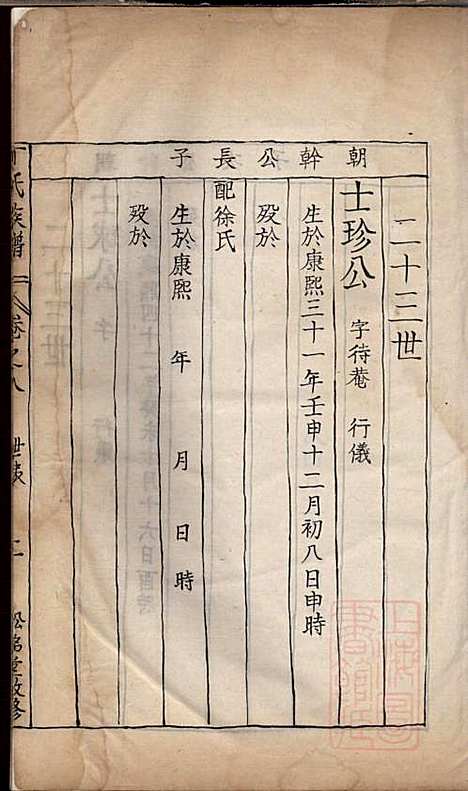 朝幹公長子
二十三世
士珍公 字待菴 行儀
生於康熙三十一年壬申十二月初八日申時
歿於
配徐氏
生於康熙 年 月 日時
歿於
氏族譜 卷之八 世表 二